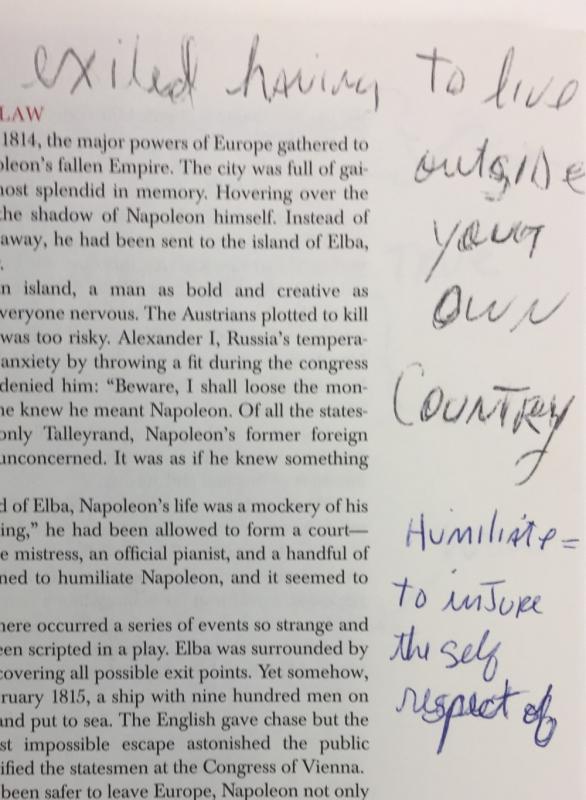 exiled having to live
outside
your
own
Country
LAW
1814, the major powers of Europe gathered to
oleon's fallen Empire. The city was full of gai-
nost splendid in memory. Hovering over the
he shadow of Napoleon himself. Instead of
away, he had been sent to the island of Elba,
n island, a man as bold and creative as
veryone nervous. The Austrians plotted to kill
was too risky. Alexander I, Russia's tempera-
anxiety by throwing a fit during the congress
denied him: “Beware, I shall loose the mon-
ne knew he meant Napoleon. Of all the states-
only Talleyrand, Napoleon's former foreign
unconcerned. It was as if he knew something
d of Elba, Napoleon's life was a mockery of his
ing,” he had been allowed to form a court—
e mistress, an official pianist, and a handful of
ned to humiliate Napoleon, and it seemed to
here occurred a series of events so strange and
een scripted in a play. Elba was surrounded by
covering all possible exit points. Yet somehow,
ruary 1815, a ship with nine hundred men on
and put to sea. The English gave chase but the
st impossible escape astonished the public
ified the statesmen at the Congress of Vienna.
been safer to leave Europe, Napoleon not only
Humiliate=
to injure
the self
respect of